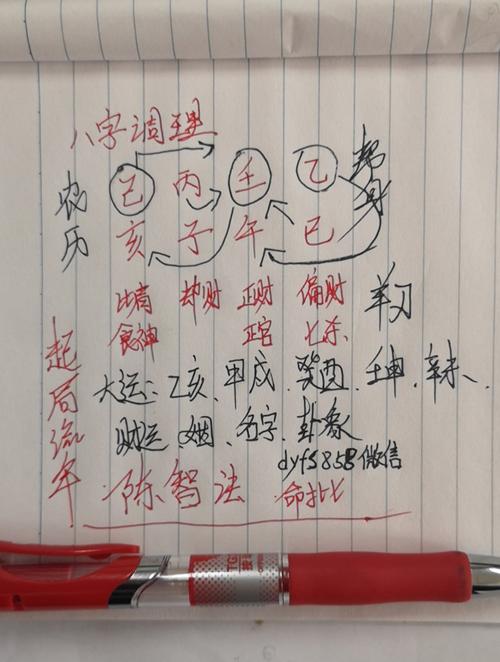 八字调理
农历
己 丙 壬 乙
亥 子 午 巳
帮身
比肩 劫财 正财 偏财 羊刃
食神 正官 七杀
大运:乙亥、甲戌、癸酉、壬申、辛未、
财运、姻、名字、卦象
dyf5858微信
陈智法 命批
起局流年